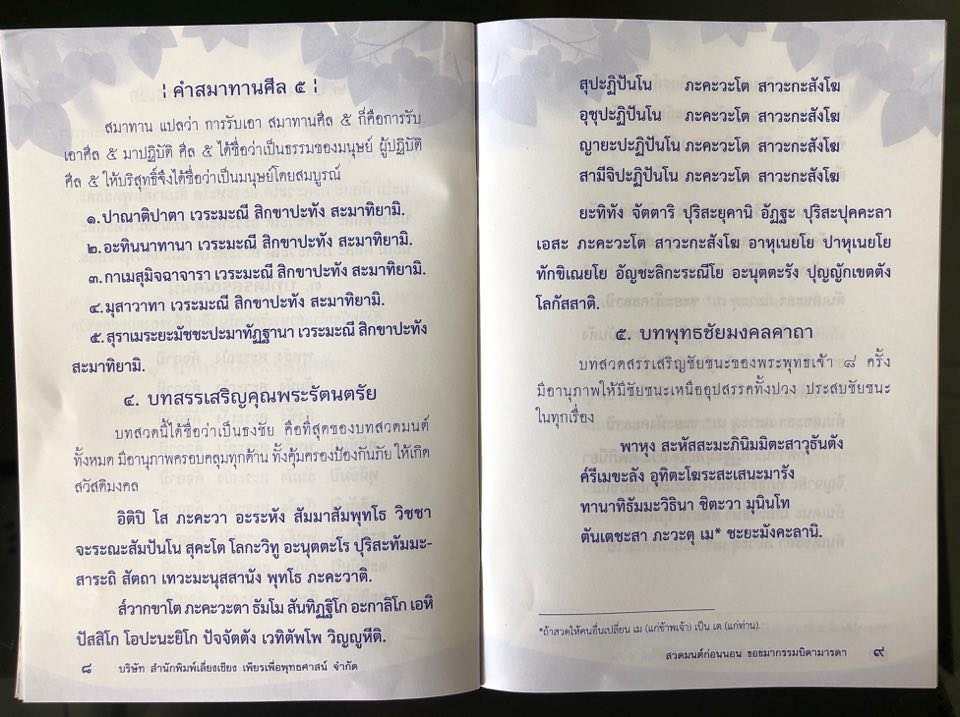 คำสมาทานศีล ๕
สมาทาน แปลว่า การรับเอา สมาทานศีล ๕ ก็คือการรับ
เอาศีล ๕ มาปฏิบัติ ศีล ๕ ได้ชื่อว่าเป็นธรรมของมนุษย์ ผู้ปฏิบัติ
ศีล ๕ ให้บริสุทธิ์จึงได้ชื่อว่าเป็นมนุษย์โดยสมบูรณ์
๑. ปาณาติปาตา เวระมะณี สิกขาปะทัง สะมาทิยามิ.
๒. อะทินนาทานา เวระมะณี สิกขาปะทัง สะมาทิยามิ.
๓. กาเมสุมิจฉาจารา เวระมะณี สิกขาปะทัง สะมาทิยามิ.
๔. มุสาวาทา เวระมะณี สิกขาปะทัง สะมาทิยามิ.
๕. สุราเมระยะมัชชะปะมาทัฏฐานา เวระมะณี สิกขาปะทัง
สะมาทิยามิ.
๔. บทสรรเสริญคุณพระรัตนตรัย
บทสวดนี้ได้ชื่อว่าเป็นธงชัย คือที่สุดของบทสวดมนต์
ทั้งหมด มีอานุภาพครอบคลุมทุกด้าน ทั้งคุ้มครองป้องกันภัย ให้เกิด
สวัสดิมงคล
อิติปิ โส ภะคะวา อะระหัง สัมมาสัมพุทโธ วิชชา
จะระณะสัมปันโน สุคะโต โลกะวิทู อะนุตตะโร ปุริสะทัมมะ-
สาระถิ สัตถา เทวะมะนุสสานัง พุทโธ ภะคะวาติ.
ส๎วากขาโต ภะคะวะตา ธัมโม สันทิฏฐิโก อะกาลิโก เอหิ
ปัสสิโก โอปะนะยิโก ปัจจัตตัง เวทิตัพโพ วิญญูหีติ.
๘ บริษัท สำนักพิมพ์เลี่ยงเชียง เพียรเพื่อพุทธศาสน์ จำกัด
สุปะฏิปันโน ภะคะวะโต สาวะกะสังโฆ
อุชุปะฏิปันโน ภะคะวะโต สาวะกะสังโฆ
ญายะปะฏิปันโน ภะคะวะโต สาวะกะสังโฆ
สามีจิปะฏิปันโน ภะคะวะโต สาวะกะสังโฆ
ยะทิทัง จัตตาริ ปุริสะยุคานิ อัฏฐะ ปุริสะปุคคะลา
เอสะ ภะคะวะโต สาวะกะสังโฆ อาหุเนยโย ปาหุเนยโย
ทักขิเณยโย อัญชะลิกะระณีโย อะนุตตะรัง ปุญญักเขตตัง
โลกัสสาติ.
๕. บทพุทธชัยมงคลคาถา
บทสวดสรรเสริญชัยชนะของพระพุทธเจ้า ๘ ครั้ง
มีอานุภาพให้มีชัยชนะเหนืออุปสรรคทั้งปวง ประสบชัยชนะ
ในทุกเรื่อง
พาหุง สะหัสสะมะภินิมมิตะสาวุธันตัง
ค๎รีเมขะลัง อุทิตะโฆระสะเสนะมารัง
ทานาทิธัมมะวิธินา ชิตะวา มุนินโท
ตันเตชะสา ภะวะตุ เม* ชะยะมังคะลานิ.
*ถ้าสวดให้คนอื่นเปลี่ยน เม (แก่ข้าพเจ้า) เป็น เต (แก่ท่าน).
สวดมนต์ก่อนนอน ขอขมากรรมบิดามารดา ๙